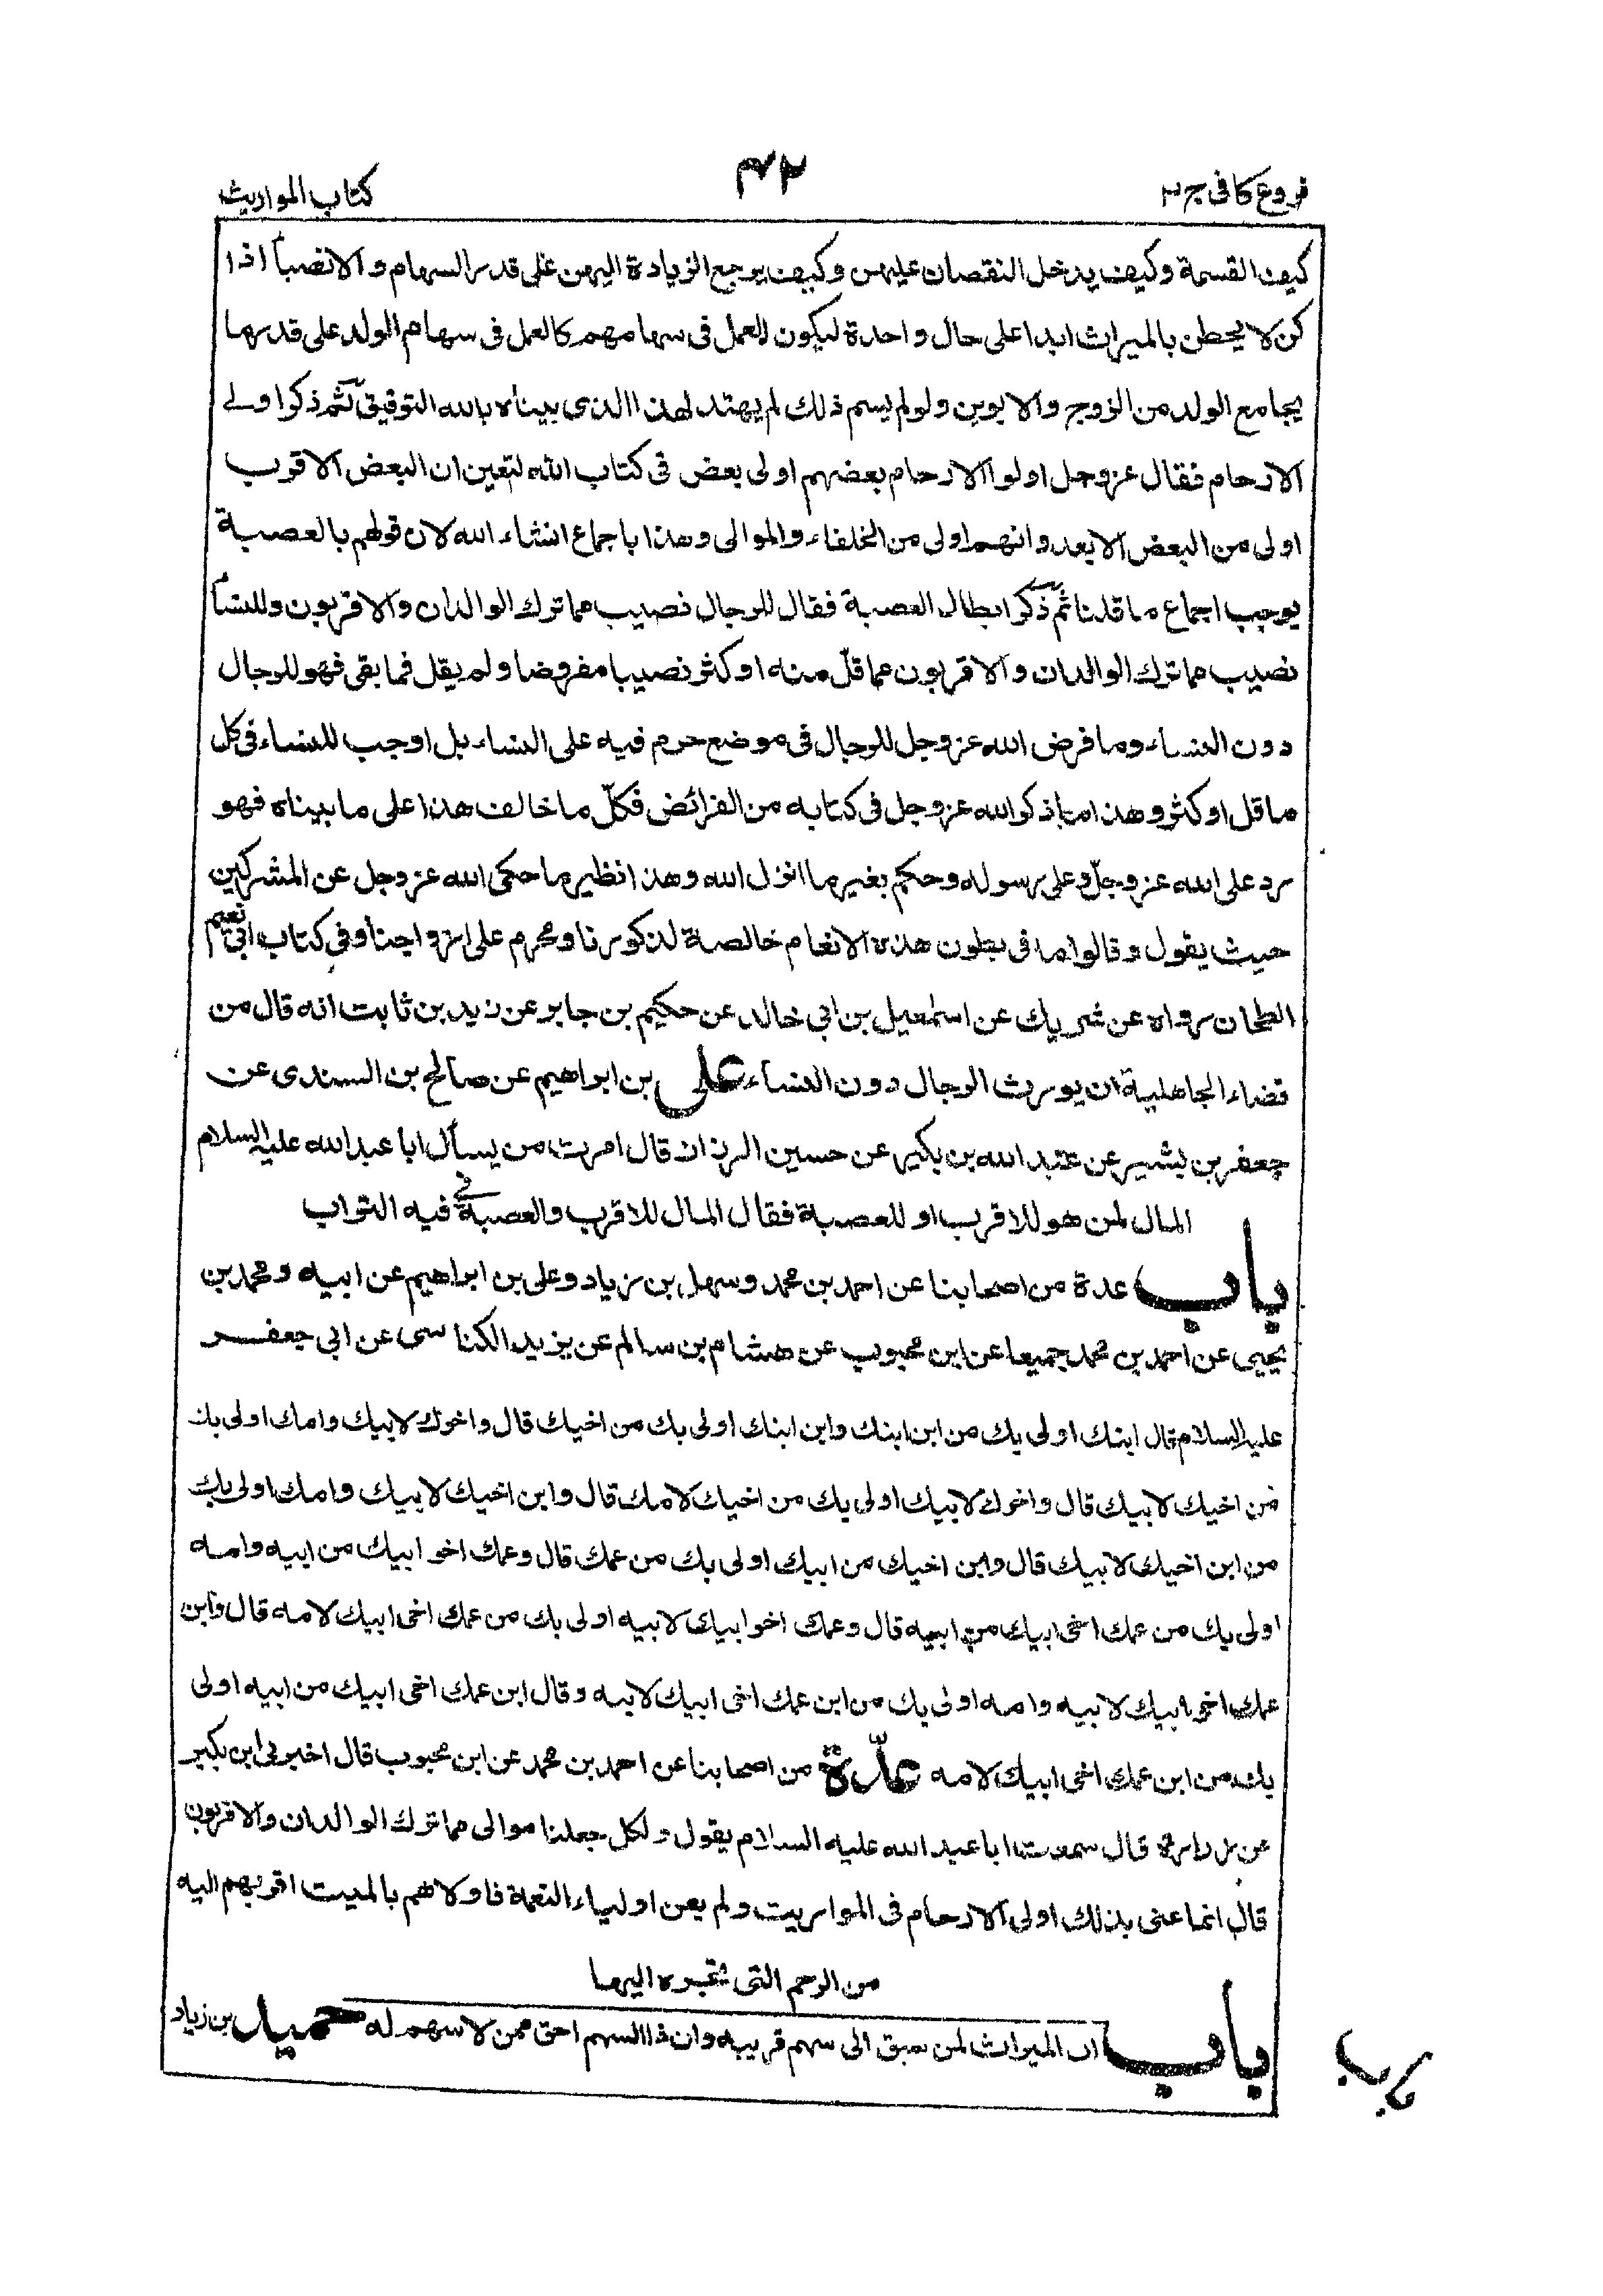 فروع كافى ج٣
٤٢
كتاب المواريث
كيف القسمة وكيف يدخل النقصان عليهن وكيف يرجع الزيادة اليهن على قدر السهام والانصبأ اذا
كن لا يحطن بالميراث ابدا على حال واحدة ليكون العمل فى سهامهم كالعمل فى سهام الولد على قدر ما
يجامع الولد من الزوج والابوين ولو لم يسم ذلك لم يهتد لهذا الذى بيناه بالله التوفيق ثم ذكر اولى
الارحام فقال عزوجل اولوا الارحام بعضهم اولى بعض فى كتاب الله لتعين ان البعض الاقرب
اولى من البعض الابعد وانهم اولى من الخلفاء والموالى وهذا باجماع انشاء الله لان قولهم بالعصبة
يوجب اجماع ما قلنا ثم ذكر ابطال العصبة فقال للرجال نصيب مما ترك الوالدان والاقربون وللنسأ
نصيب مما ترك الوالدان والاقربون مما قلّ منه او كثر نصيبا مفروضا ولم يقل فما بقى فهو للرجال
دون النساء وما فرض الله عزوجل للرجال فى موضع حرم فيه على النساء بل اوجب للنساء فى كل
ما قل او كثر وهذا ما ذكر الله عزوجل فى كتابه من الفرائض فكلّ ما خالف هذا على ما بيناه فهو
رد على الله عزوجلّ وعلى رسوله وحكم بغير ما انزل الله وهذا نظير ما حكى الله عزوجل عن المشركين
حيث يقول وقالوا ما فى بطون هذه الانعام خالصة لذكورنا ومحرم على ازواجنا وفى كتاب ابى نعيم
الطحان رواه عن شريك عن اسمعيل بن ابى خالد عن حكيم بن جابر عن زيد بن ثابت انه قال من
قضاء الجاهلية ان يورث الرجال دون النساء على بن ابراهيم عن صالح بن السندى عن
جعفر بن بشير عن عبد الله بن بكير عن حسين الرزاز قال امرت من يسأل ابا عبد الله عليه السلام
المال لمن هو للاقرب او للعصبة فقال المال للاقرب والعصبة فى فيه التراب
باب عدة من اصحابنا عن احمد بن محمد وسهل بن زياد وعلى بن ابراهيم عن ابيه ومحمد بن
يحيى عن احمد بن محمد جميعا عن ابن محبوب عن هشام بن سالم عن يزيد الكناسى عن ابى جعفر
عليه السلام قال ابنك اولى بك من ابن ابنك وابن ابنك اولى بك من اخيك قال واخوك لابيك وامك اولى بك
من اخيك لابيك قال واخوك لابيك اولى بك من اخيك لامك قال وابن اخيك لابيك وامك اولى بك
من ابن اخيك لابيك قال وابن اخيك من ابيك اولى بك من عمك قال وعمك اخو ابيك من ابيه وامه
اولى بك من عمك اخى ابيك من ابيه قال وعمك اخو ابيك لابيه اولى بك من عمك اخى ابيك لامه قال وابن
عمك اخو ابيك لابيه وامه اولى بك من ابن عمك اخى ابيك لابيه وقال ابن عمك اخى ابيك من ابيه اولى
بك من ابن عمك اخى ابيك لامه عدّة من اصحابنا عن احمد بن محمد عن ابن محبوب قال اخبرنى ابن بكير
عن زرارة قال سمعت ابا عبد الله عليه السلام يقول ولكل جعلنا موالى مما ترك الوالدان والاقربون
قال انما عنى بذلك اولى الارحام فى المواريث ولم يعن اولياء النعمة فاولاهم بالميت اقربهم اليه
من الرحم التى تجره اليها
باب ان الميراث لمن سبق الى سهم قريبه وان ذا السهم احق ممن لا سهم له حميد بن زياد
باب